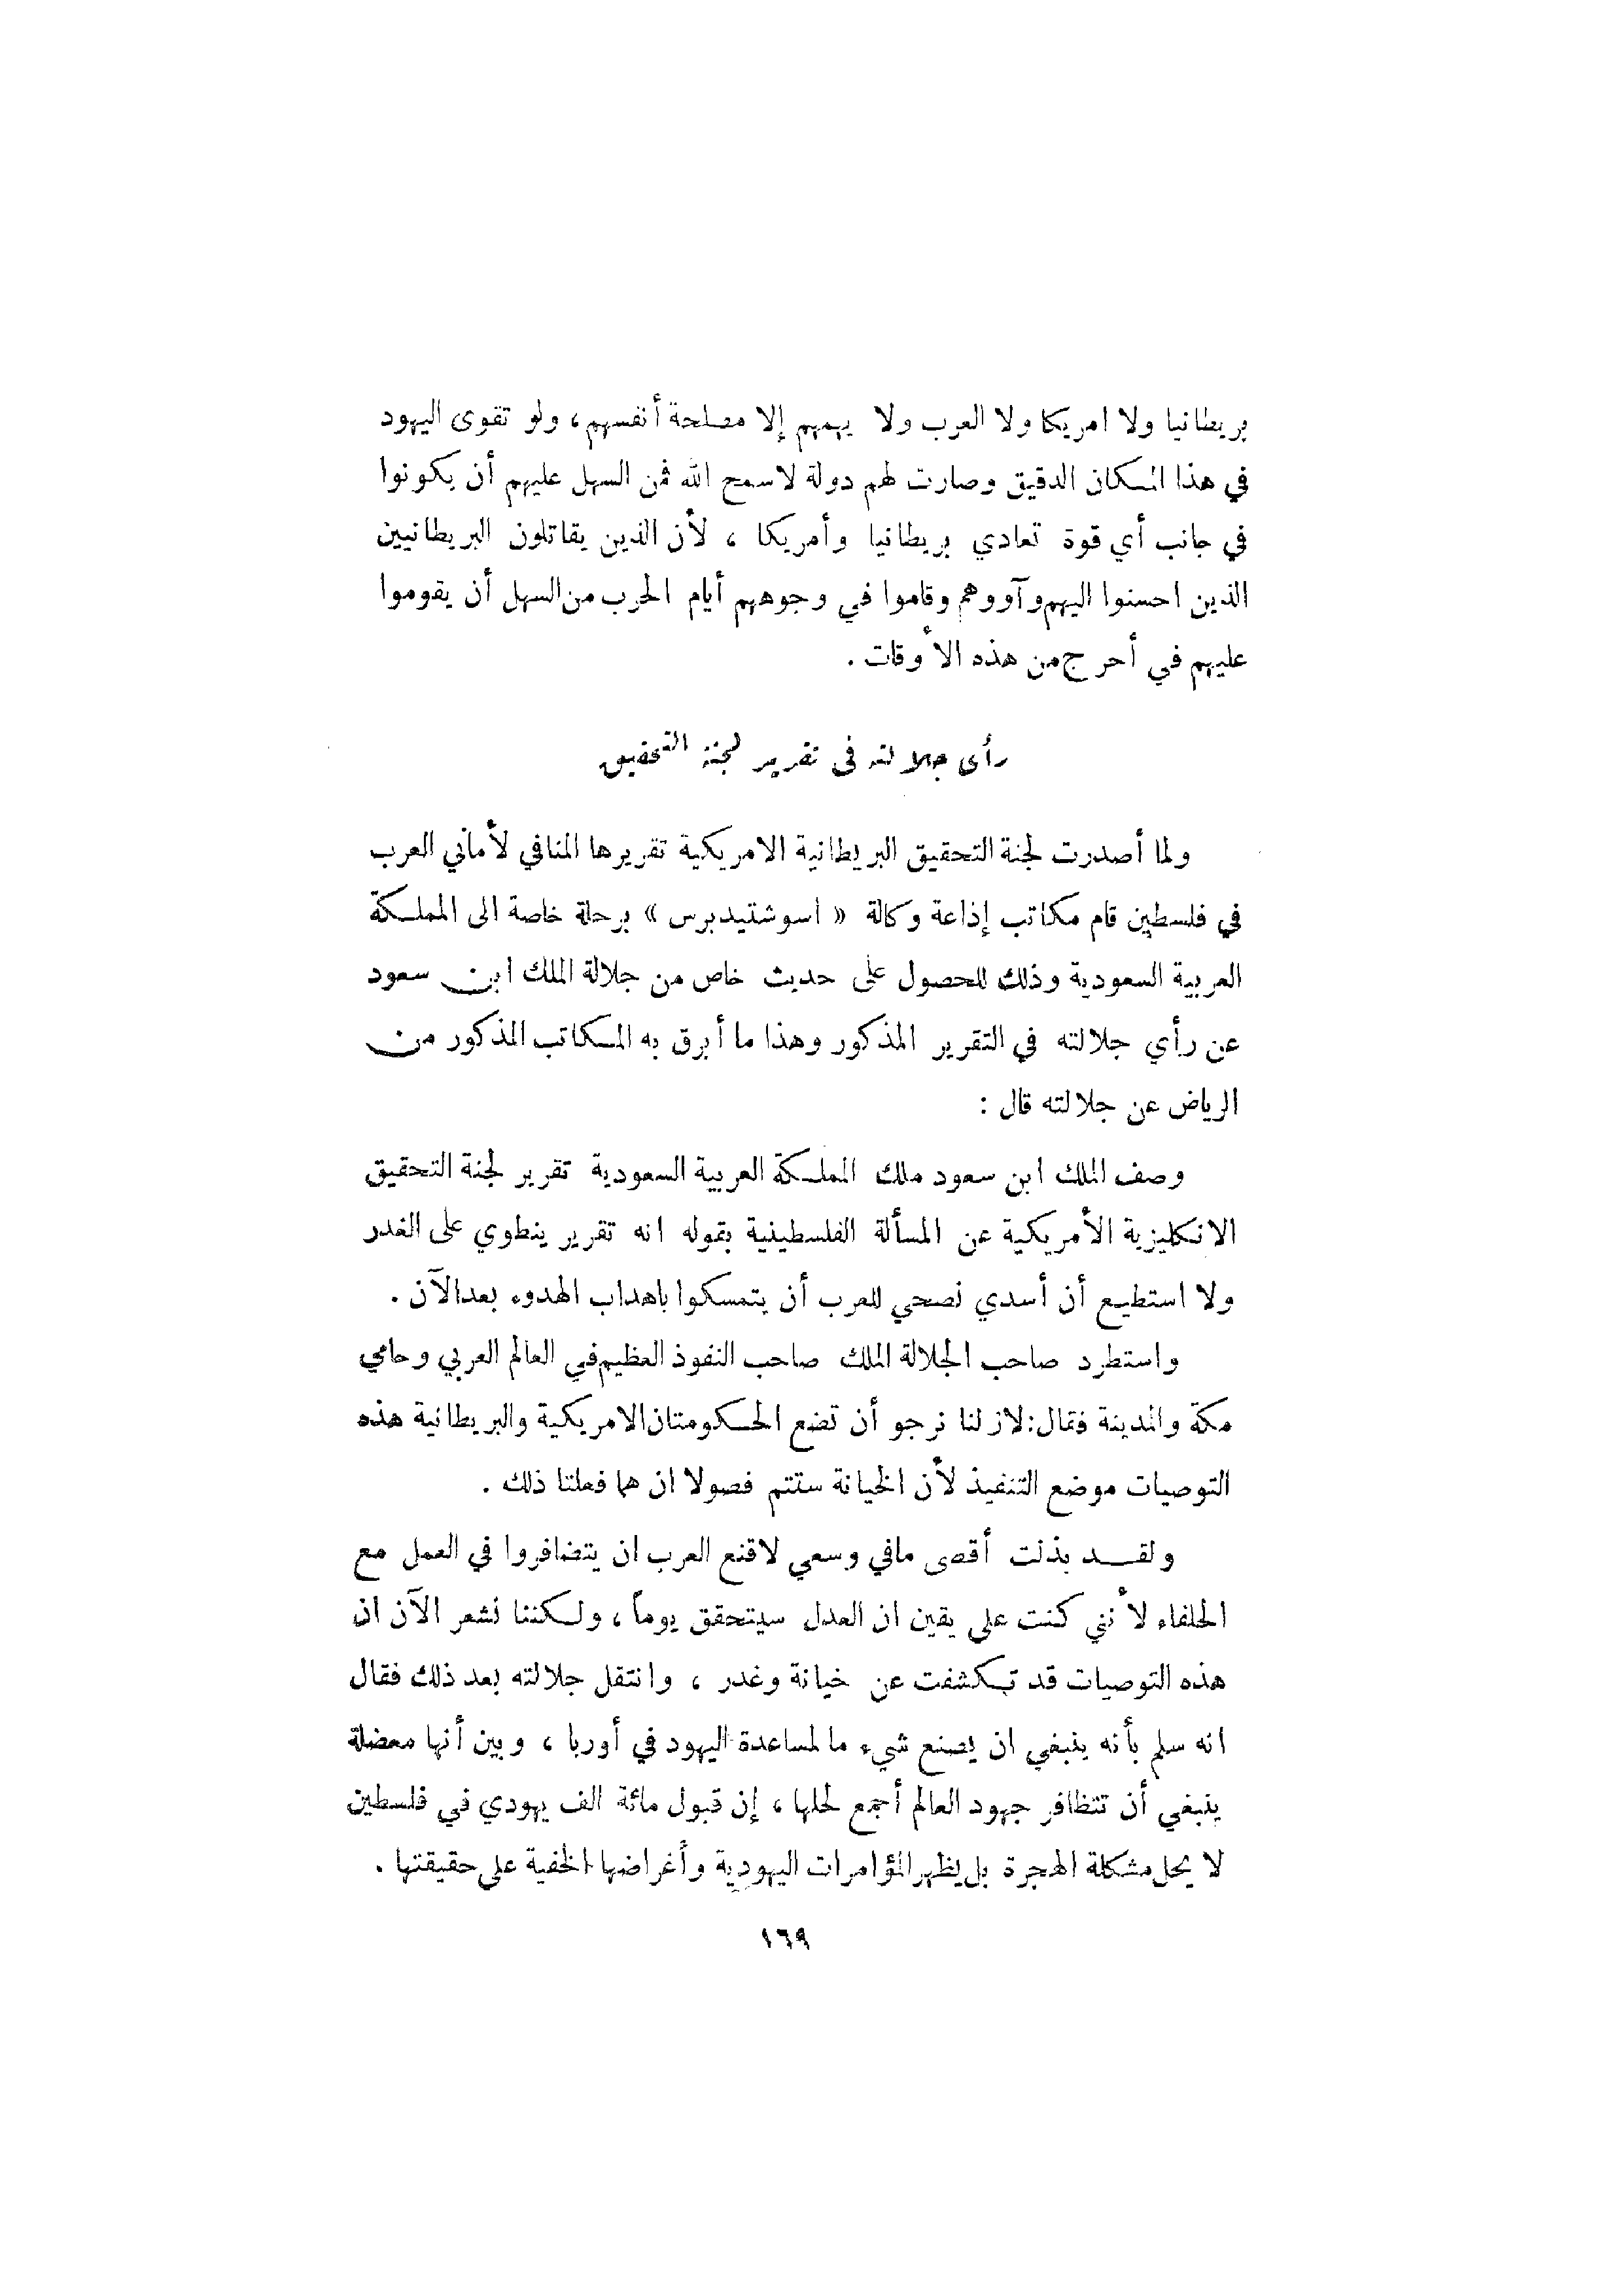 بريطانيا ولا امريكا ولا العرب ولا يهمهم إلا مصلحة أنفسهم، ولو تقوى اليهود
في هذا المكان الدقيق وصارت لهم دولة لاسمح الله فمن السهل عليهم أن يكونوا
في جانب أي قوة تعادي بريطانيا وأمريكا ، لأن الذين يقاتلون البريطانيين
الذين احسنوا اليهم وآووهم وقاموا في وجوههم أيام الحرب من السهل أن يقوموا
عليهم في أحرج من هذه الأوقات .
رأى جلالته فى تقرير لجنة التحقيق
ولما أصدرت لجنة التحقيق البريطانية الامريكية تقريرها المنافي لأماني العرب
في فلسطين قام مكاتب إذاعة وكالة « اسوشتيدبرس » برحلة خاصة الى المملكة
العربية السعودية وذلك للحصول على حديث خاص من جلالة الملك ابن سعود
عن رأي جلالته في التقرير المذكور وهذا ما أبرق به المكاتب المذكور من
الرياض عن جلالته قال :
وصف الملك ابن سعود ملك المملكة العربية السعودية تقرير لجنة التحقيق
الانكليزية الأمريكية عن المسألة الفلسطينية بقوله انه تقرير ينطوي على الغدر
ولا استطيع أن أسدي نصحي للعرب أن يتمسكوا باهداب الهدوء بعد الآن .
واستطرد صاحب الجلالة الملك صاحب النفوذ العظيم في العالم العربي وحامي
مكة والمدينة فقال: لازلنا نرجو أن تضع الحكومتان الامريكية والبريطانية هذه
التوصيات موضع التنفيذ لأن الخيانة ستتم فصولا ان هما فعلتا ذلك .
ولقد بذلت أقصى مافي وسعي لاقنع العرب ان يتضافروا في العمل مع
الحلفاء لأنني كنت على يقين ان العدل سيتحقق يوماً ، ولكننا نشعر الآن ان
هذه التوصيات قد تكشفت عن خيانة وغدر ، وانتقل جلالته بعد ذلك فقال
انه سلم بأنه ينبغي ان يصنع شيء ما لمساعدة اليهود في أوربا ، وبين أنها معضلة
ينبغي أن تتظافر جهود العالم أجمع لحلها ، إن قبول مائة الف يهودي في فلسطين
لا يحل مشكلة الهجرة بل يظهر المؤامرات اليهودية وأغراضها الخفية على حقيقتها .
١٦٩